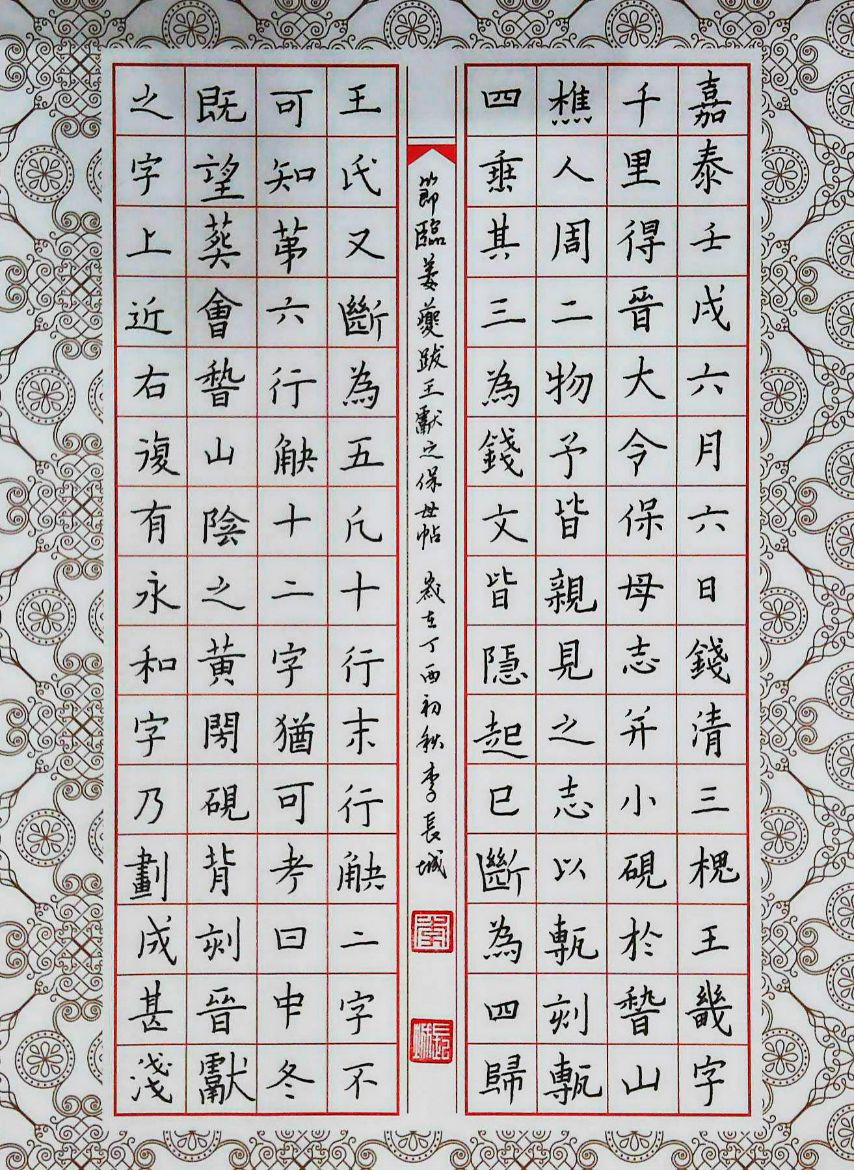 嘉泰壬戌六月六日錢清三槐王畿字
千里得晉大令保母志并小硯於稽山
樵人周二物予皆親見之志以甎刻甎
四垂其三為錢文皆隱起已斷為四歸
節臨姜夔跋王獻之保母帖 歲在丁酉初秋李長城
王氏又斷為五凡十行末行觖二字不
可知第六行觖十二字猶可考曰中冬
既望葬會稽山陰之黃閍硯背刻晉獻
之字上近右復有永和字乃劃成甚淺